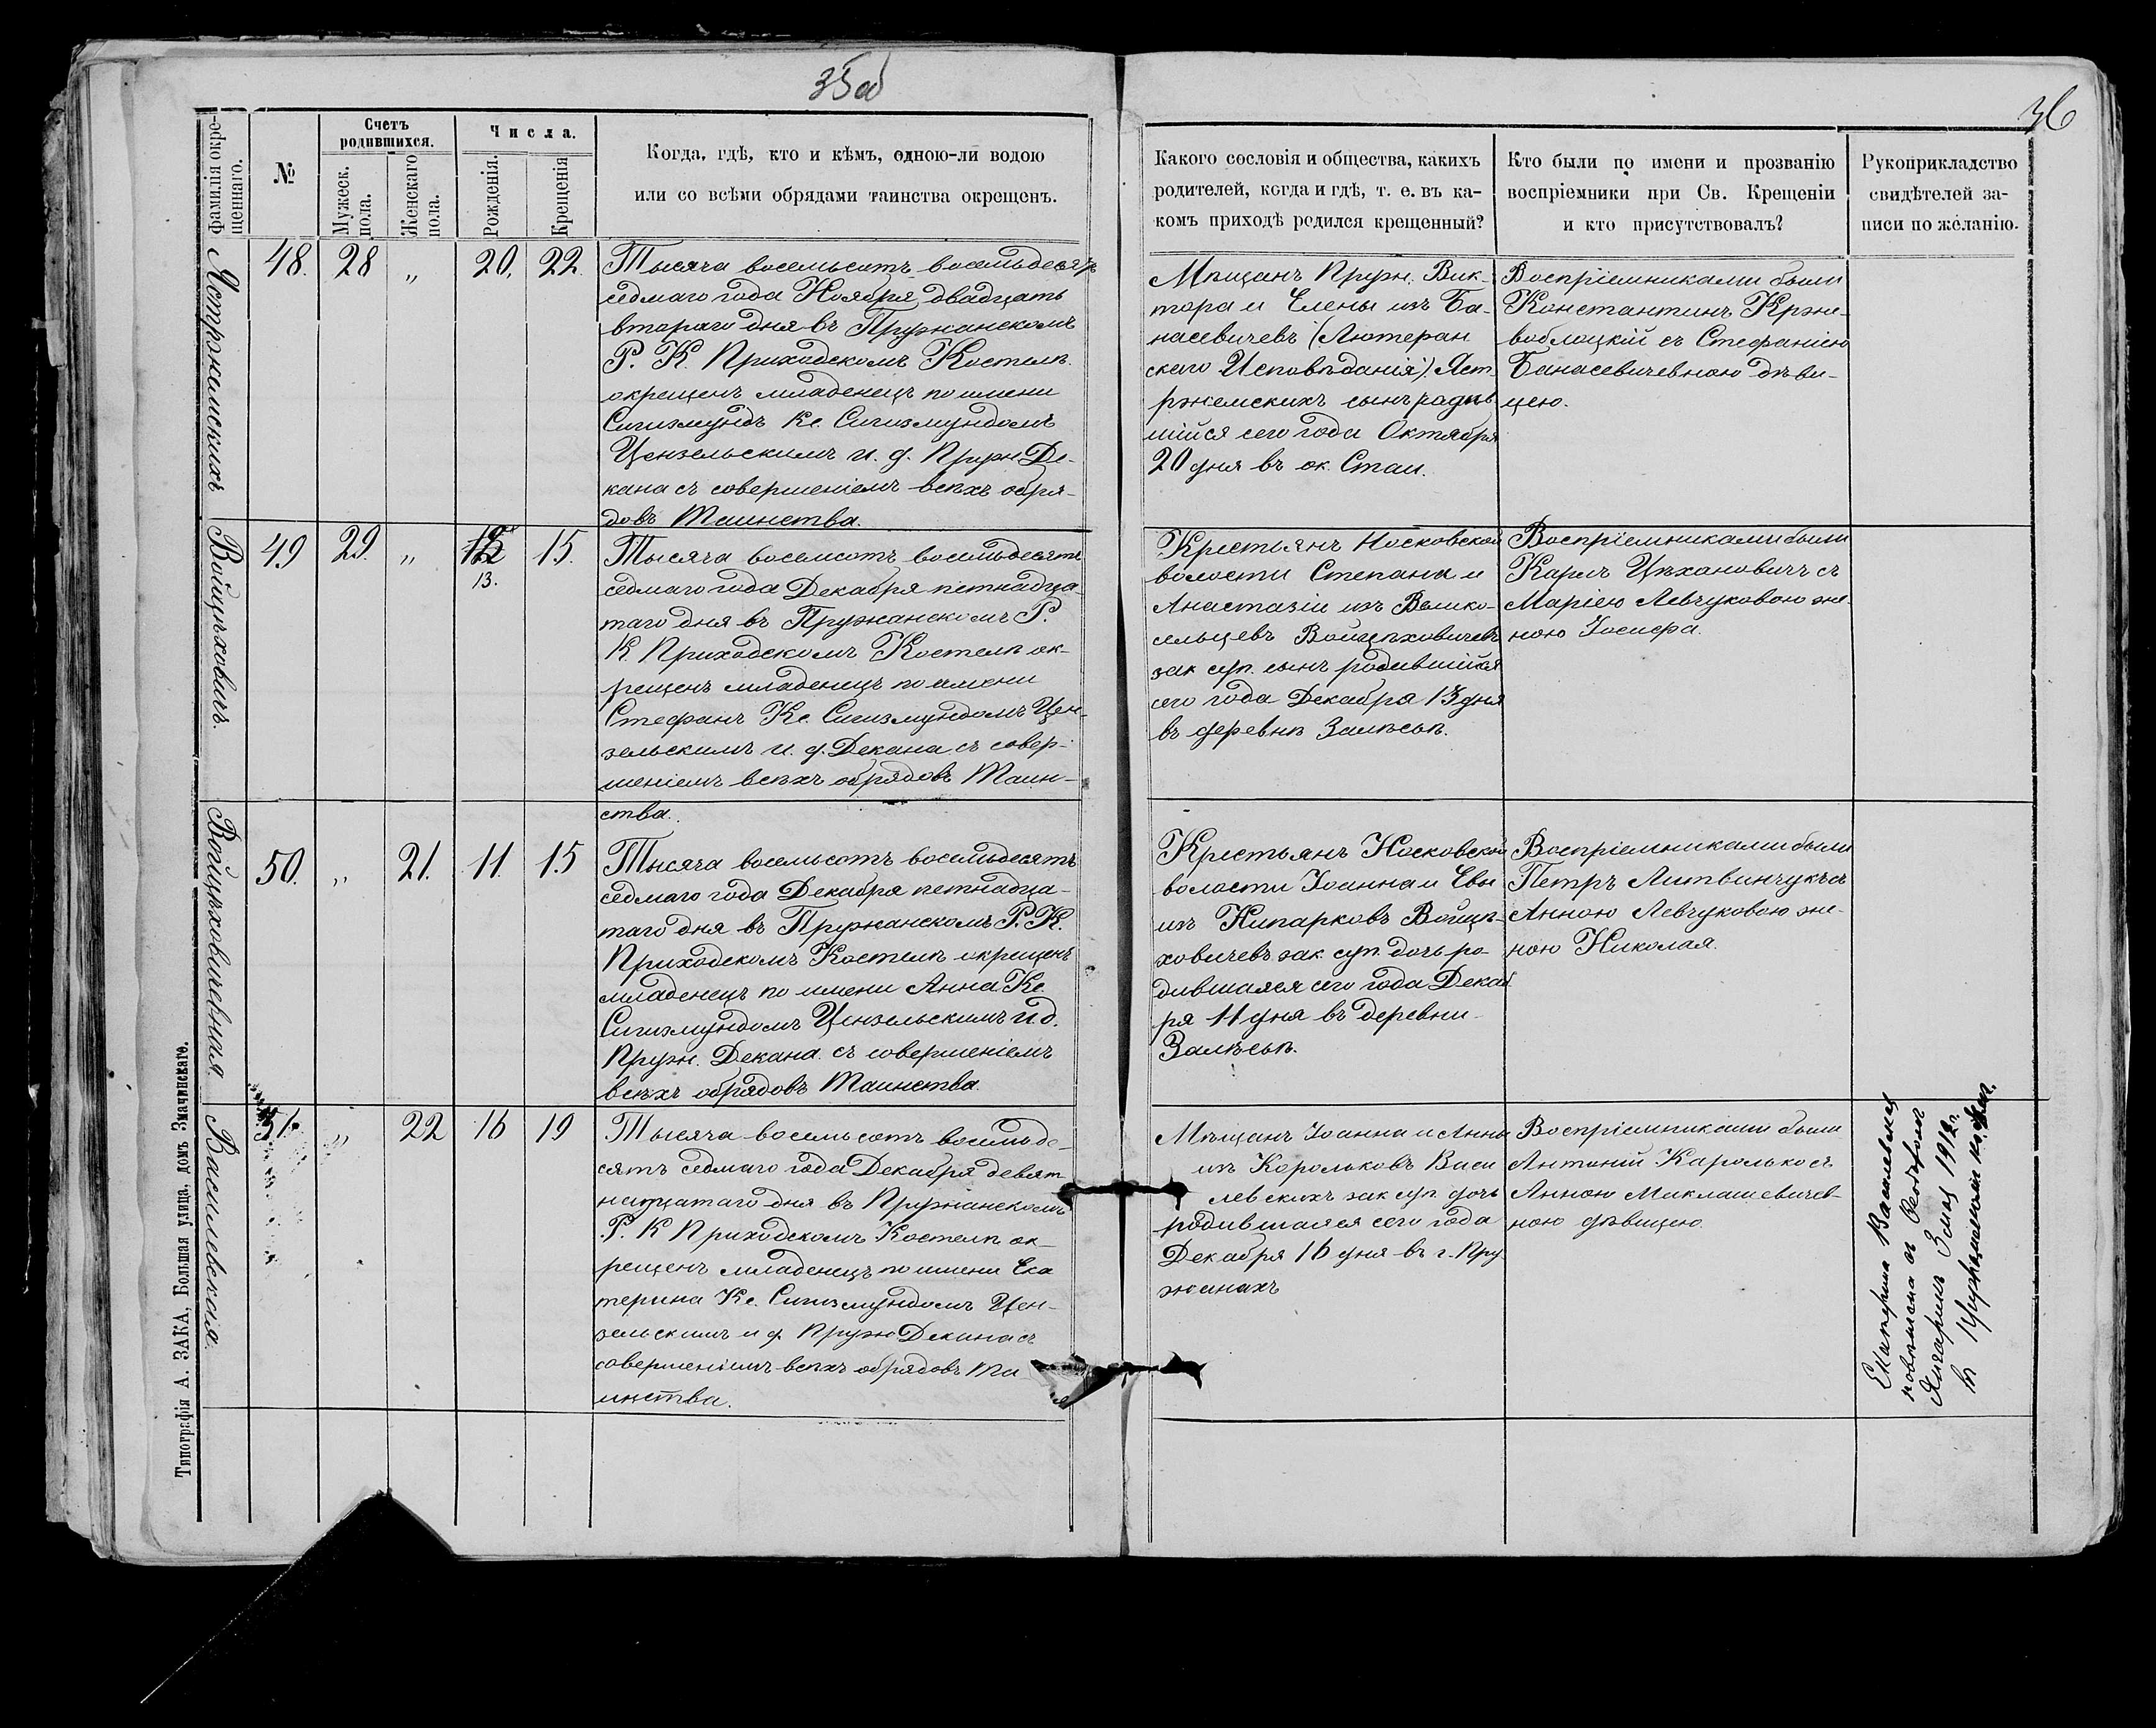 35об
36
Фамилія кре-
щеннаго.
№
Счетъ
родившихся.
Мужеск.
пола.
Женскаго
пола.
Числа.
Рожденія.
Крещенія
Когда, гдѣ, кто и кѣмъ, одною-ли водою
или со всѣми обрядами таинства окрещенъ.
Какого сословія и общества, какихъ
родителей, когда и гдѣ, т. е. въ ка-
комъ приходѣ родился крещенный?
Кто были по имени и прозванію
воспріемники при Св. Крещеніи
и кто присутствовалъ?
Рукоприкладство
свидѣтелей за-
писи по желанію.
Ястржемскихъ
48. 28 „ 20, 22.
Тысяча восемьсотъ восемьдесятъ
седмаго года Ноября двадцать
втораго дня въ Пружанскомъ
Р. К. Приходскомъ Костелѣ
окрещенъ младенецъ по имени
Сигизмундъ Кс. Сигизмундомъ
Цензельскимъ и. д. Пруж. Де-
кана съ совершеніемъ всѣхъ обря-
довъ Таинства.
Мѣщанъ Пруж. Вик-
тора и Елены изъ Ба-
насевичевъ (Лютеран
скаго Исповѣданія) Яст-
ржемскихъ сынъ родив
шійся сего года Октября
20 дня въ ок. Стаи.
Воспріемниками были
Константинъ Крже-
воблоцкій съ Стефаніею
Банасевичевною дѣви-
цею.
Войцѣховичъ.
49 29. „ 13. 15.
Тысяча восемсотъ восемьдесятъ
седмаго года Декабря петнадца-
таго дня въ Пружанскомъ Р.
К. Приходскомъ Костелѣ ок-
рещенъ младенецъ по имени
Стефанъ Кс. Сигизмундомъ Цен-
зельскимъ и. д. Декана съ совер-
шеніемъ всѣхъ обрядовъ Таин-
ства.
Крестьянъ Носковской
волости Степана и
Анастазіи изъ Велико-
сельцевъ Войцѣховичевъ
зак. суп. сынъ родившійся
сего года Декабря 13 дня
въ деревнѣ Залѣсьѣ.
Воспріемниками были
Карлъ Цѣхановичъ съ
Маріею Левчуковою же-
ною Іосифа.
Войцѣховичевная
50. „ 21. 11. 15
Тысяча восемьсотъ восемьдесятъ
седмаго года Декабря петнадца-
таго дня въ Пружанскомъ Р. К.
Приходскомъ Костелѣ окрещенъ
младенецъ по имени Анна Кс.
Сигизмундомъ Цензельскимъ и. д.
Пруж. Декана съ совершеніемъ
всѣхъ обрядовъ Таинства.
Крестьянъ Носковской
волости Іоанна и Евы
изъ Нипарковъ Войцѣ-
ховичевъ зак. суп. дочь ро-
дившаяся сего года Декаб
ря 11 дня въ деревни
Залѣсьѣ.
Воспріемниками были
Петръ Литвинчукъ съ
Анною Левчуковою же-
ною Николая.
Василевская.
51. „ 22 16 19
Тысяча восемьсотъ восемьде-
сятъ седмаго года Декабря девят
надцатаго дня въ Пружанскомъ
Р. К Приходскомъ Костелѣ ок-
рещенъ младенецъ по имени Ека
терина Кс. Сигизмундомъ Цен-
зельскимъ и д. Пруж Декана съ
совершеніемъ всѣхъ обрядовъ Та
инства.
Мѣщанъ Іоанна и Анны
изъ Корольковъ Васи
левскихъ зак суп. дочь
родившаяся сего года
Декабря 16 дня въ г. Пру
жанахъ
Воспріемниками были
Антоній Каролько съ
Анною Миклашевичев-
ною дѣвицею.
Екатерина Василевская
повѣнчана съ
1912 г.
въ
Типографія А. ЗАКА, Большая улица, домъ Значинскаго.